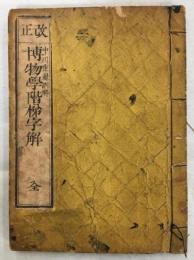 改正
博物學階梯字解
全